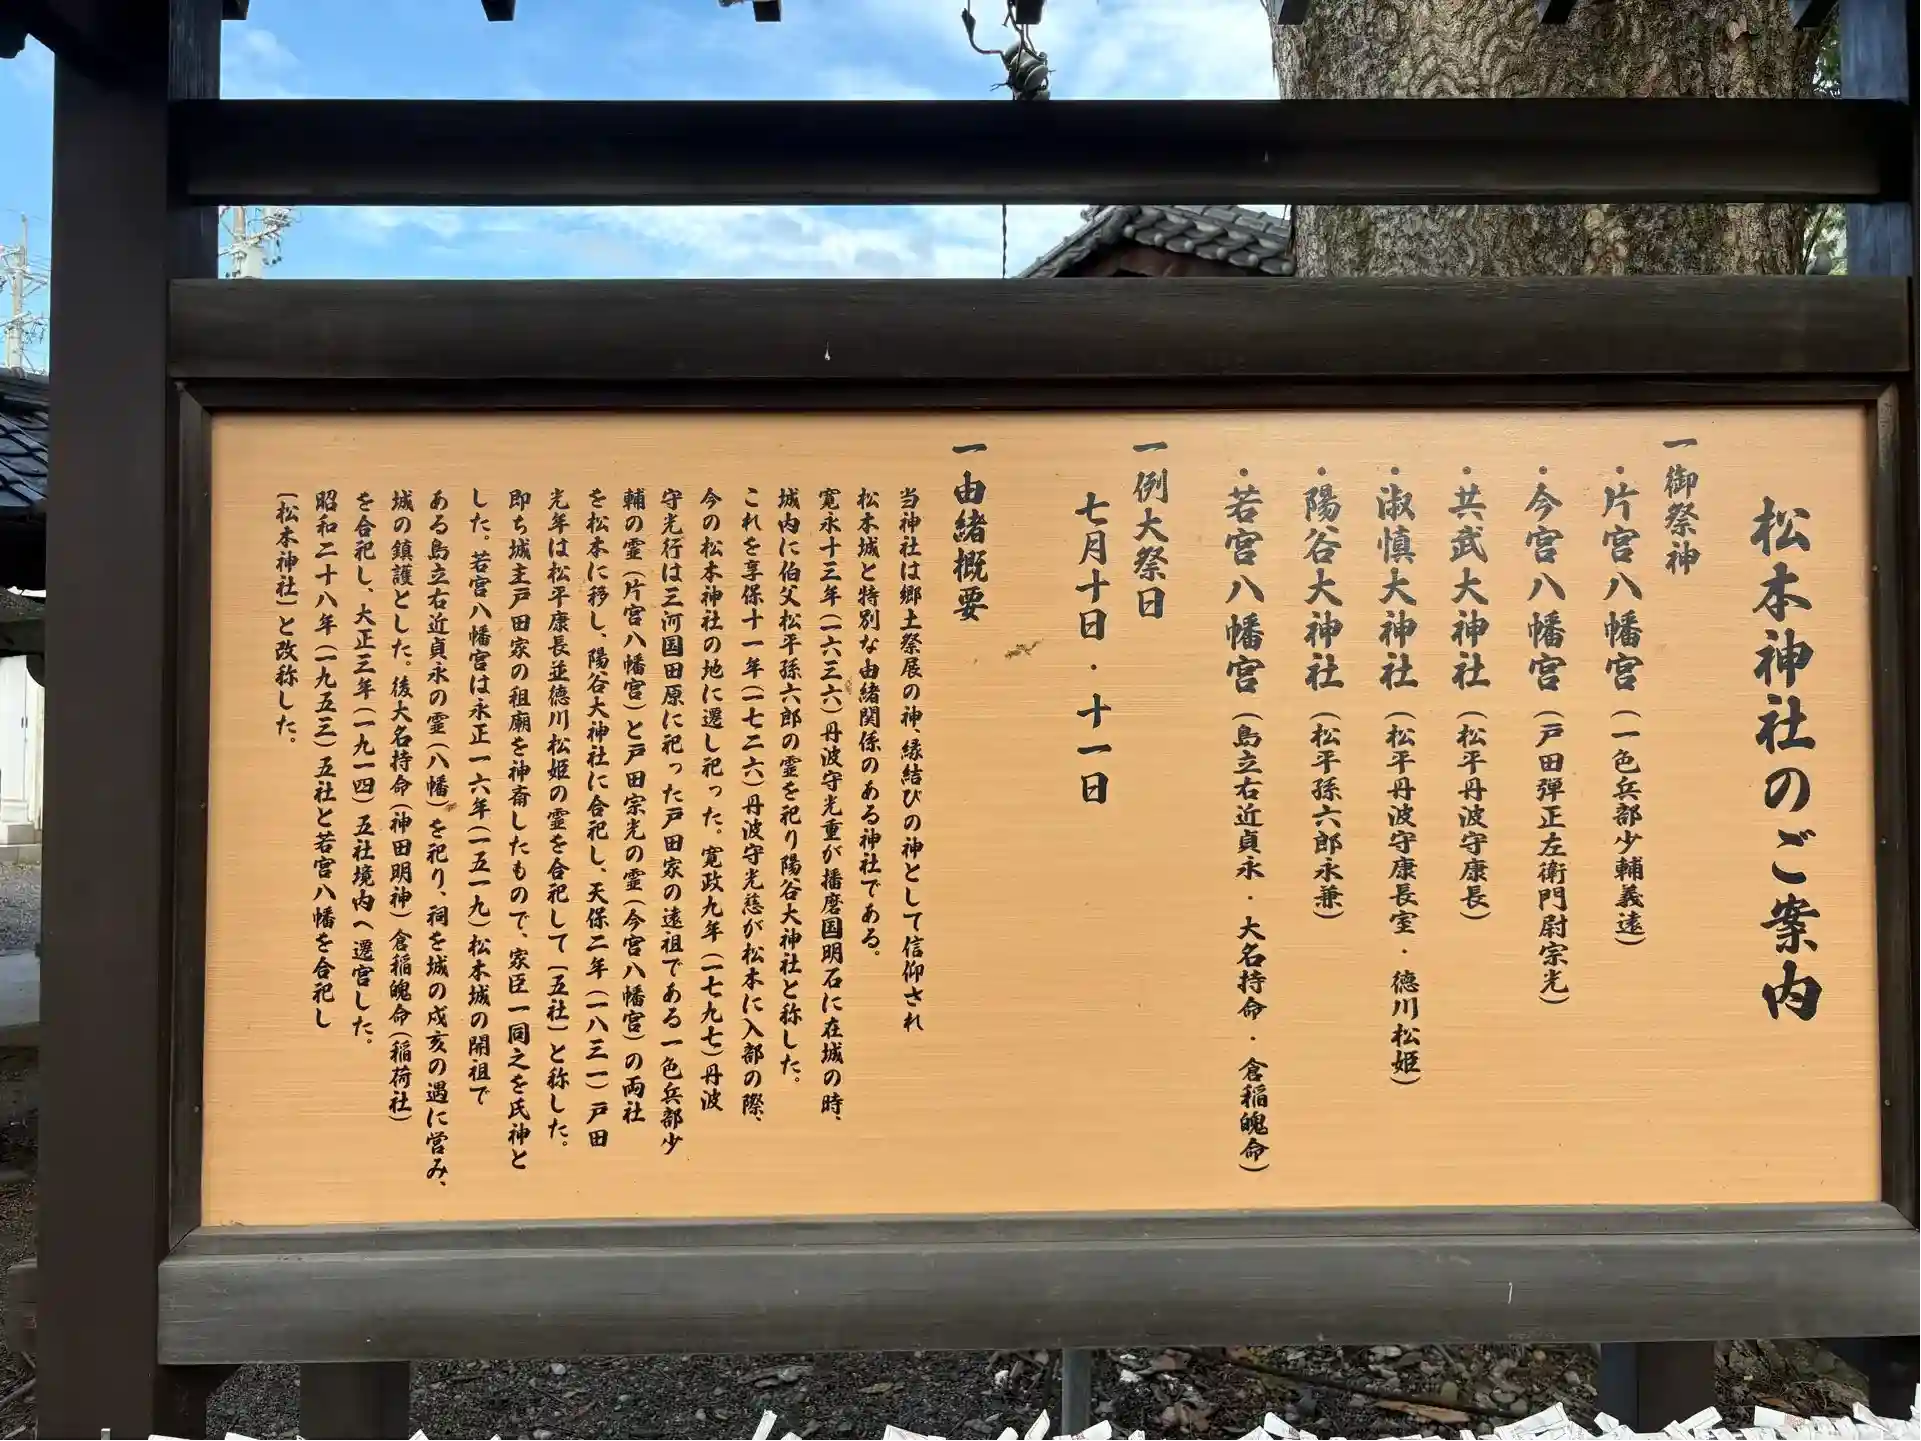 松本神社のご案内
一 御祭神
・片宮八幡宮(一色兵部少輔義遠)
・今宮八幡宮(戸田弾正左衛門尉宗光)
・共武大神社(松平丹波守康長)
・淑慎大神社(松平丹波守康長室・徳川松姫)
・陽谷大神社(松平孫六郎永兼)
・若宮八幡宮(島立右近貞永・大名持命・倉稲魄命)
一 例大祭日
七月十日・十一日
一 由緒概要
当神社は郷土祭展の神、縁結びの神として信仰され
松本城と特別な由緒関係のある神社である。
寛永十三年(一六三六)丹波守光重が播磨国明石に在城の時、
城内に伯父松平孫六郎の霊を祀り陽谷大神社と称した。
これを享保十一年(一七二六)丹波守光慈が松本に入部の際、
今の松本神社の地に遷し祀った。寛政九年(一七九七)丹波
守光行は三河国田原に祀った戸田家の遠祖である一色兵部少
輔の霊(片宮八幡宮)と戸田宗光の霊(今宮八幡宮)の両社
を松本に移し、陽谷大神社に合祀し、天保二年(一八三一)戸田
光年は松平康長並徳川松姫の霊を合祀して〔五社〕と称した。
即ち城主戸田家の祖廟を神斎したもので、家臣一同之を氏神と
した。若宮八幡宮は永正一六年(一五一九)松本城の開祖で
ある島立右近貞永の霊(八幡)を祀り、祠を城の戌亥の遇に営み、
城の鎮護とした。後大名持命(神田明神)倉稲魄命(稲荷社)
を合祀し、大正三年(一九一四)五社境内へ遷宮した。
昭和二十八年(一九五三)五社と若宮八幡を合祀し
〔松本神社〕と改称した。